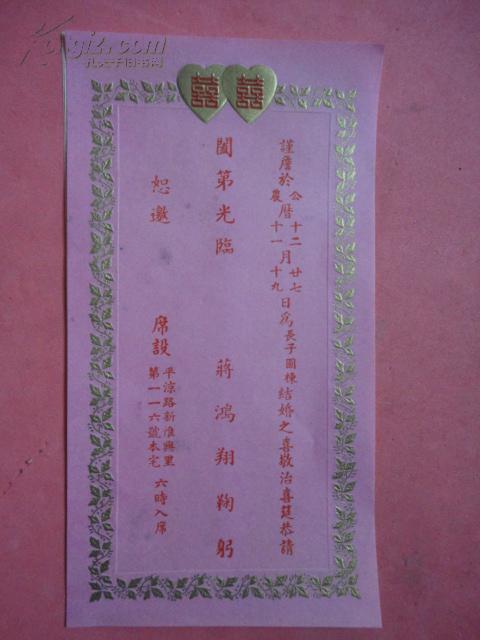 囍囍
謹詹於公曆十二月廿七日為長子國棟結婚之喜敬治喜筵恭請
農曆十一月十九
闔第光臨
蔣鴻翔鞠躬
恕邀
席設 平涼路新淮興里 六時入席
第一一六號本宅
孔夫子旧书网